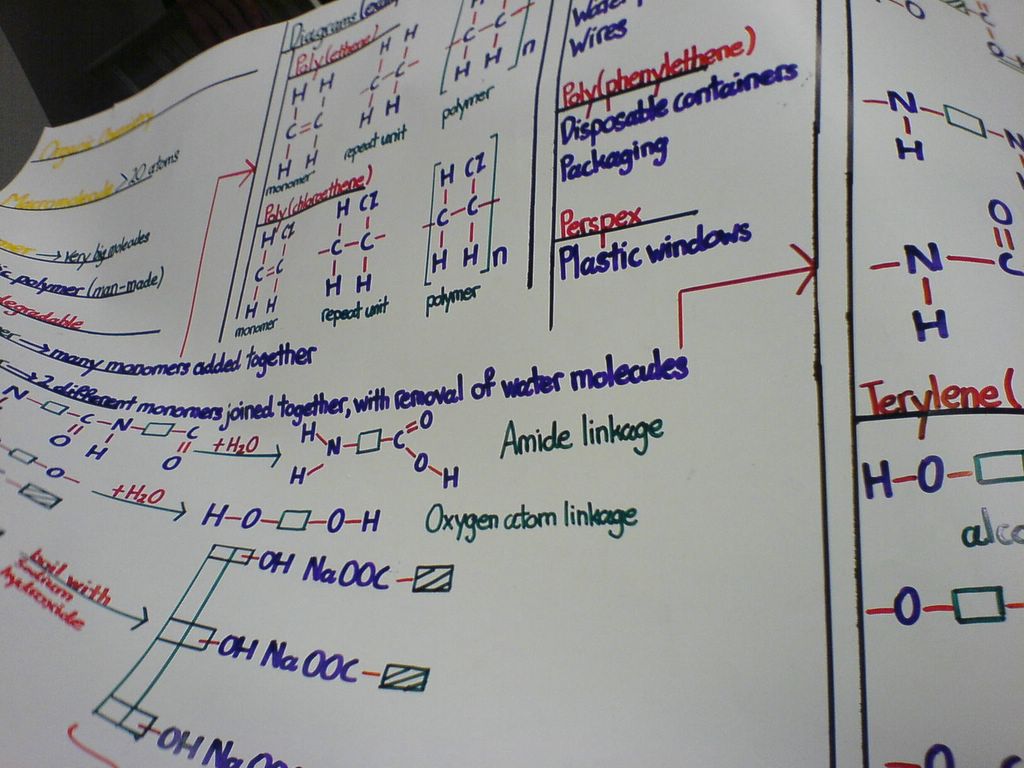 Organic Chemistry
Macromolecule > 20 atoms
→ very big molecules
polymer (man-made)
degradable
→ many monomers added together
→ 2 different monomers joined together, with removal of water molecules
Diagrams
Poly(ethene)
H H
C = C
H H
monomer
H H
C - C
H H
repeat unit
C - C
H H
n
polymer
Poly(chloroethene)
H Cl
C = C
H H
monomer
H Cl
C - C
H H
repeat unit
H Cl
C - C
H H
n
polymer
Wires
Poly(phenylethene)
Disposable containers
Packaging
Perspex
Plastic windows
N C N C
O H O
+H2O
H N C O
H O H
Amide linkage
O
+H2O
H-O O-H
Oxygen atom linkage
boil with
sodium
hydroxide
OH NaOOC
OH NaOOC
OH NaOO
O C
O
N N
H
O
N C
H
Terylene (
H-O
alco
O
O